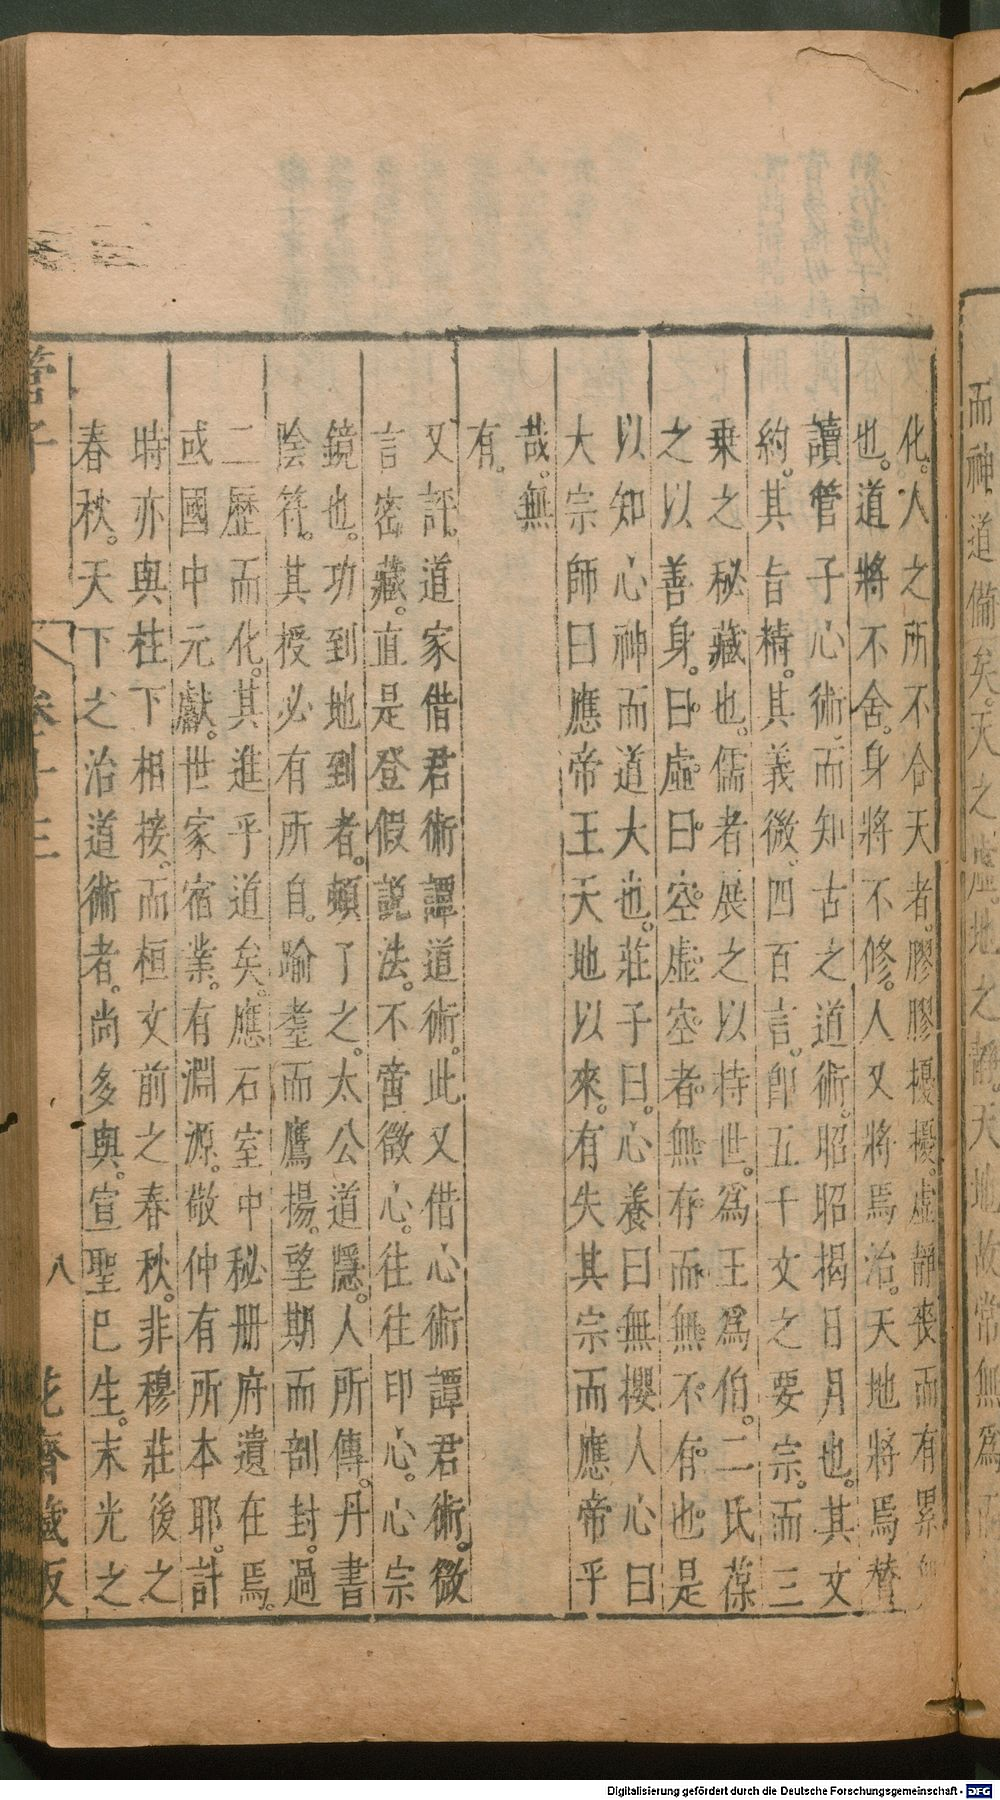 而神道備矣。天之虛。地之靜。天地故常無爲
化。人之所不合天者。膠膠擾擾。虛靜喪而有累
也。道將不舍。身將不修。人又將焉治。天地將焉贊
讀管子心術。而知古之道術。昭昭揭日月也。其文
約。其旨精。其義微。四百言。卽五千文之要宗。而三
乘之秘藏也。儒者展之以持世。爲王爲伯。二氏葆
之以善身。曰虛。曰空。虛空者。無存而無不有也。是
以知心神而道大也。莊子曰。心養曰無攖人心曰
大宗師曰應帝王天地以來。有失其宗而應帝乎
哉。無
有。
又評。道家借君術譚道術。此又借心術譚君術。微
言密藏。直是登假說法。不啻徵心。往往印心。心宗
鏡也。功到地到者。頓了之。太公道隱。人所傳。丹書
陰符。其授必有所自。踰耋而鷹揚。望期而剖封。過
二歷而化。其進乎道矣。應石室中秘册府遺在焉。
或國中元獻。世家宿業。有淵源。敬仲有所本耶。計
時亦與柱下相接。而桓文前之春秋。非穆莊後之
春秋。天下之治道術者。尚多與。宣聖巳生。末光之
管子
卷十三
八
花齋藏板
Digitalisierung gefördert durch die Deutsche Forschungsgemeinschaft - DFG